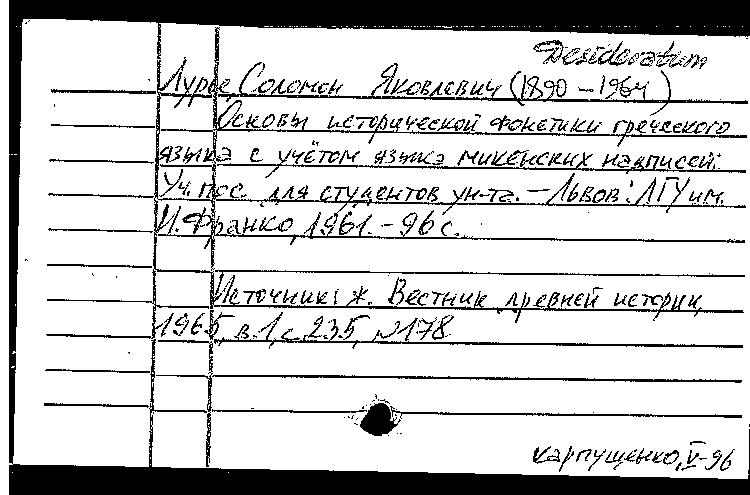 Desideratum
Лурье, Соломон Яковлевич (1890 – 1964)
Основы исторической фонетики греческого
языка с учётом языка микенских надписей.
Уч. пос. для студентов ун-та. – Львов: ЛГУ им.
И. Франко, 1961. – 96 с.
Источник: ж. Вестник древней истории,
1965, в. 1, с. 235, №178
Карпущенко, V-96